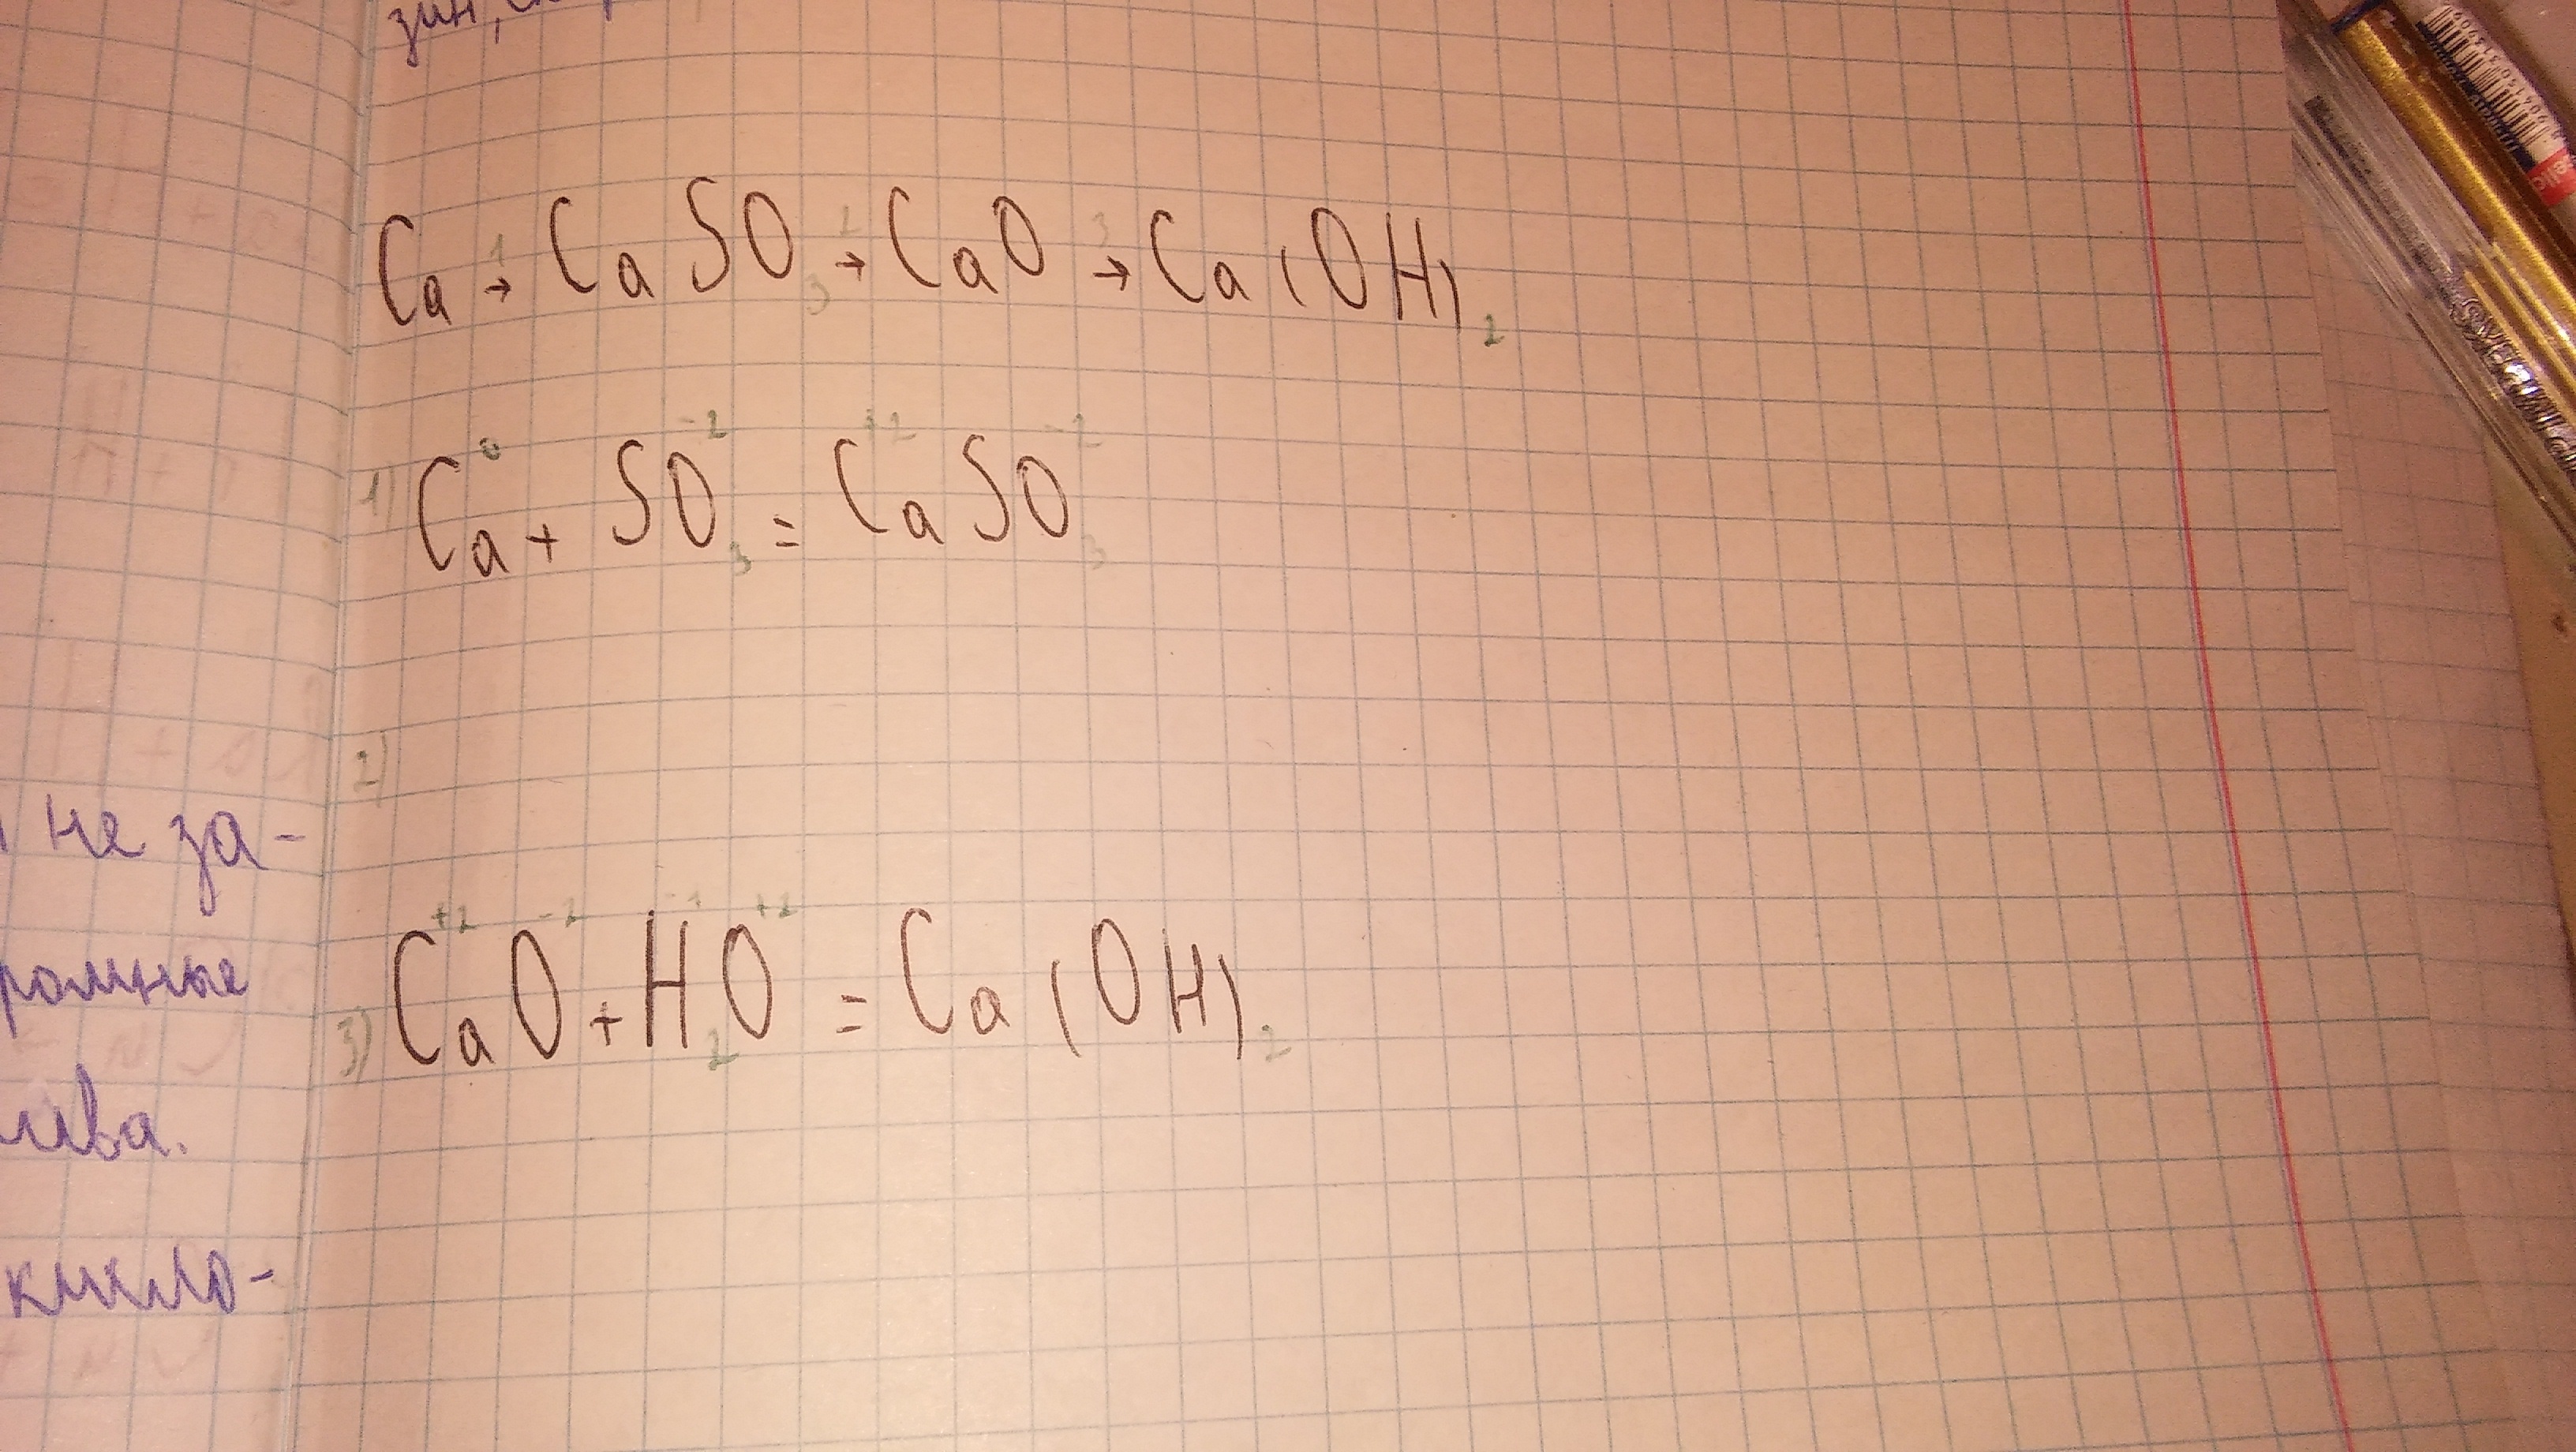 зин,
Ca →¹ CaSO₃ →² CaO →³ Ca(OH)₂
1) Ca⁰ + SO₃⁻² = Ca⁺²SO₃⁻²
2)
3) Ca⁺²O⁻² + H₂⁻¹O⁺² = Ca(OH)₂
не за-
ромные
лива.
кисло-